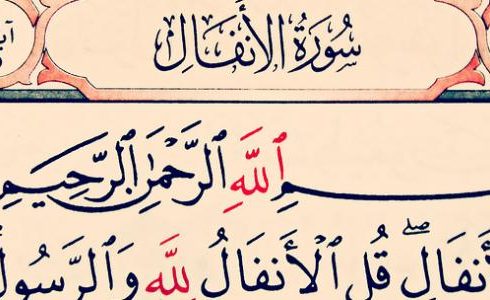 سُورَةُ الأَنفَالِ
ٱللَّهِ ٱلرَّحْمَٰنِ ٱلرَّحِيمِ
قُلِ ٱلْأَنفَالُ لِلَّهِ وَٱلرَّسُولِ